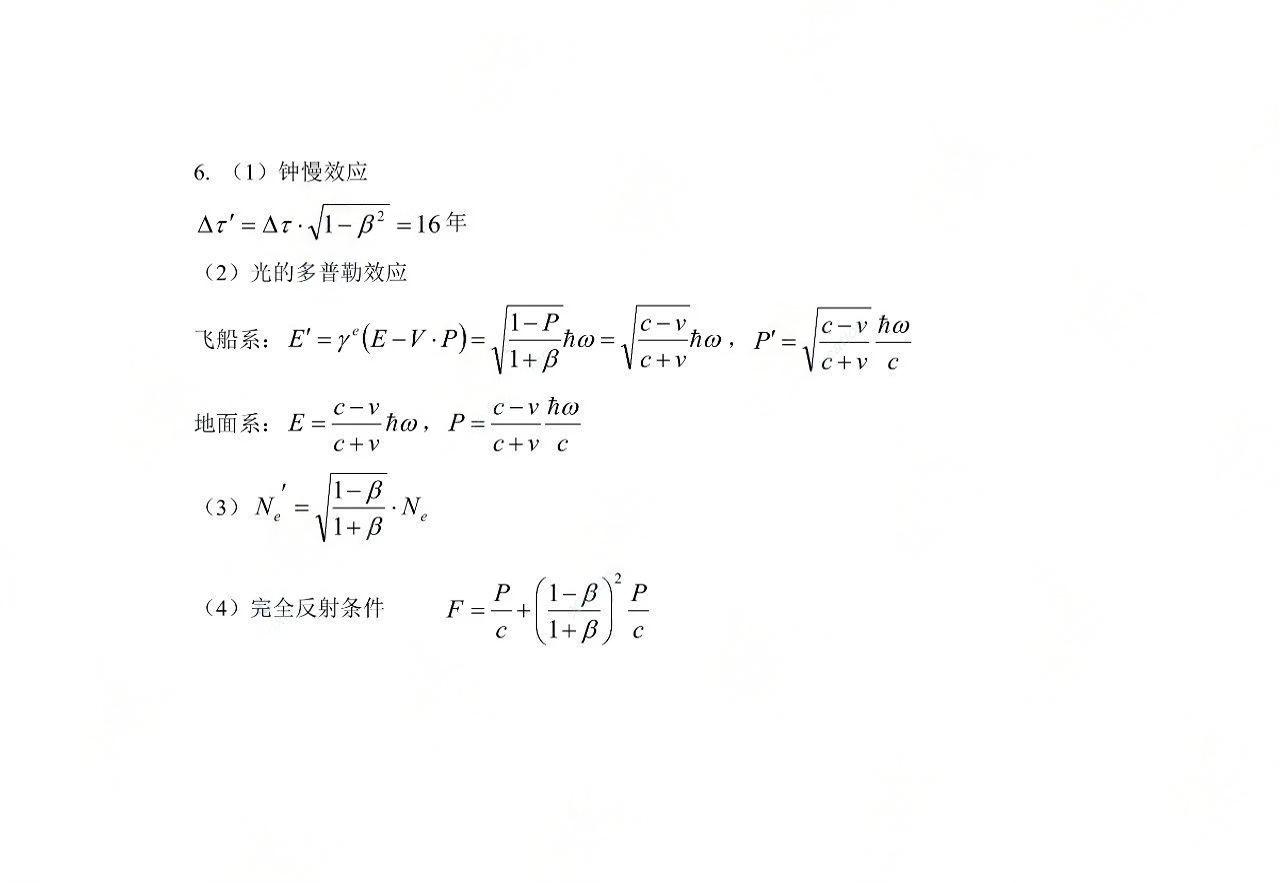 6. （1）钟慢效应
Δτ′ = Δτ · √(1 − β²) = 16 年
（2）光的多普勒效应
飞船系： E′ = γᵉ(E − V · P) = √((1 − P)/(1 + β)) ħω = √((c − v)/(c + v)) ħω ， P′ = √((c − v)/(c + v)) ħω/c
地面系： E = (c − v)/(c + v) ħω ， P = (c − v)/(c + v) ħω/c
（3） Nₑ′ = √((1 − β)/(1 + β)) · Nₑ
（4）完全反射条件 F = P/c + ((1 − β)/(1 + β))² P/c